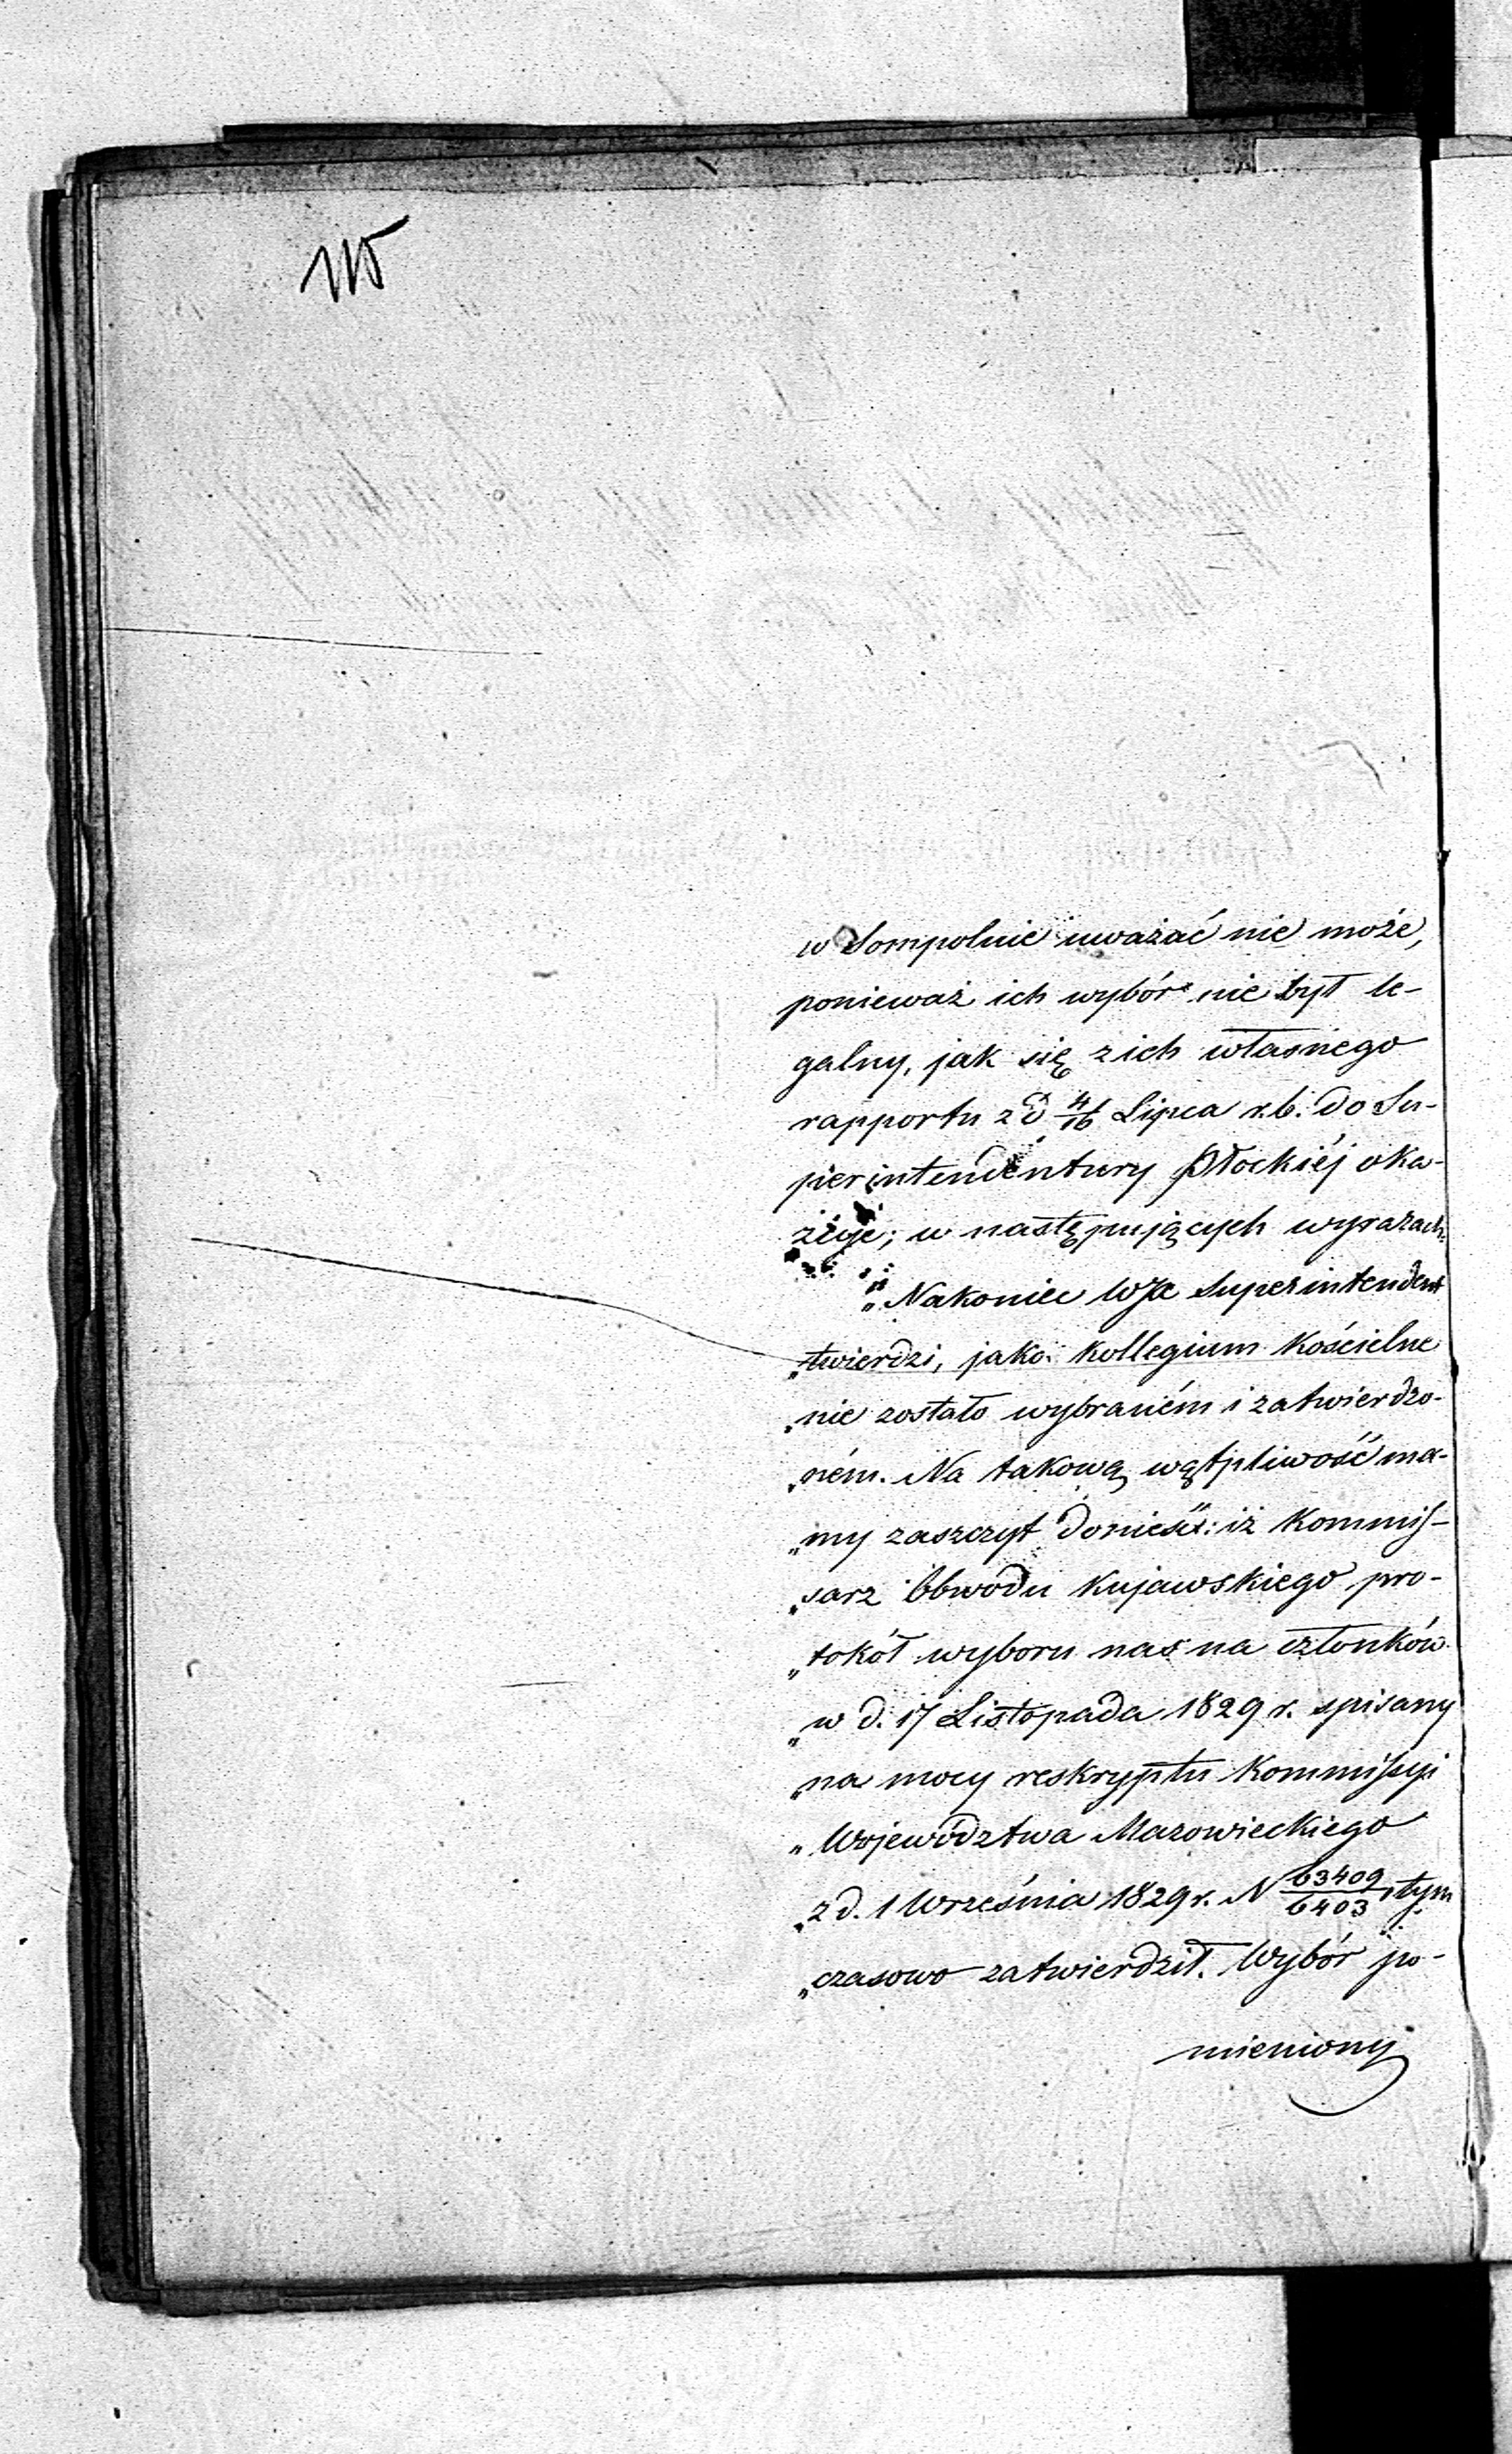 115
w Sompolnie uważać nie może,
ponieważ ich wybór nie był le-
galny, jak się z ich własnego
rapportu z d 4/16 Lipca r.b. do Su-
perintendentury Płockiéj oka-
zuje; w następujących wyrazach:
„Nakoniec WJX Superintendent
„twierdzi, jako: Kollegium Kościelne
„nie zostało wybraném i zatwierdzo-
„ném. Na takową wątpliwość ma-
„my zaszczyt donieść: iż Kommis-
„sarz Obwodu Kujawskiego pro-
„tokół wyboru nas na członków
„w d. 17 Listopada 1829 r. spisany
„na mocy reskryptu Kommissyi
„Województwa Mazowieckiego
„z d. 1 Września 1829 r. N 63409/6403, tym
„czasowo zatwierdził. Wybór po-
mieniony